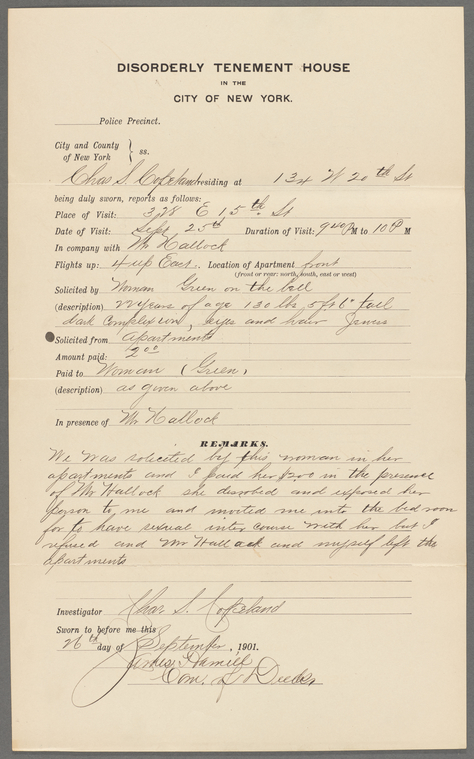 DISORDERLY TENEMENT HOUSE
IN THE
CITY OF NEW YORK.
Police Precinct.
City and County
of New York } ss.
Chas S. Copeland residing at 134 W 20th St
being duly sworn, reports as follows:
Place of Visit: 328 E 15th St
Date of Visit: Sept 25th Duration of Visit: 9 40 P M to 10 P M
In company with Mr Hallock
Flights up: 4 up East. Location of Apartment front
(front or rear: north, south, east or west)
Solicited by Woman Green on the bell
(description) 22 years of age 130 lbs. 5 ft 6" tall
dark complexion, eyes and hair Jewess
Solicited from apartments
Amount paid: $2 00
Paid to Woman (Green)
(description) as given above
In presence of Mr Hallock
REMARKS.
We was solicited by this woman in her
apartments and I paid her $2 00 in the presence
of Mr Hallock she disrobed and exposed her
person to me and invited me into the bed room
for to have sexual inter course with her but I
refused and Mr Hallock and myself left the
apartments
Investigator Chas S. Copeland
Sworn to before me this
26th day of September, 1901.
James Hamill
Com. of Deeds